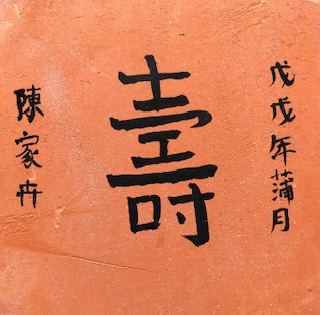 戊戌年蒲月
壽
陳家卉